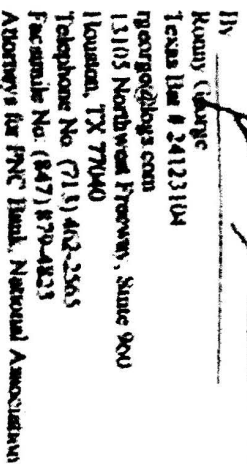 By
Ronny George
Texas Bar # 24123104
rgeorge@logs.com
13105 Northwest Freeway, Suite 960
Houston, TX 77040
Telephone No (713) 462-2565
Facsimile No: (847) 879-4823
Attorneys for PNC Bank, National Association